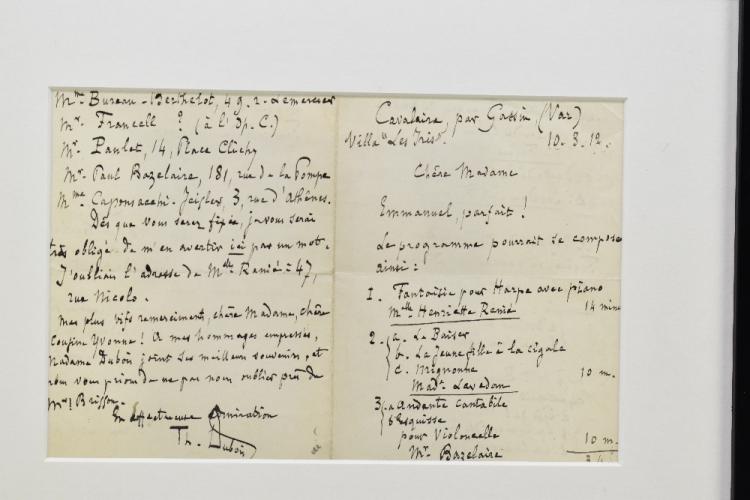 Cavalaire, par Gassin (Var)
Villa "Les Iris".
10. 3. 12.
Chère Madame
Emmanuel, parfait !
Le programme pourrait se composer
ainsi :
1. Fantaisie pour Harpe avec piano
Mlle Henriette Renié
14 min
2. a. Le Baiser
b. La Jeune fille à la cigale
c. Mignonne
10 m.
Made Levedan
3. a Andante cantabile
b Esquisse
pour Violoncelle
10 m.
Mr Bazelaire
34
Mme Bureau-Berthelot, 49. r. Lemercier
Mr Francell ? (à l'Op. C.)
Mr Paulet, 14, Place Clichy
Mr Paul Bazelaire, 181, rue de la Pompe
Mme Caponsacchi-Jeisler, 3, rue d'Athènes.
Dès que vous serez fixée, je vous serai
très obligé de m'en avertir ici par un mot.
J'oubliais l'adresse de Mlle Renié = 47,
rue Nicolo.
Mes plus vifs remerciments, chère Madame, chère
cousine Yvonne ! A mes hommages empressés,
Madame Dubois joint ses meilleurs souvenirs, et
nous vous prions de ne pas nous oublier près de
Mr Brisson.
En affectueuse admiration
Th. Dubois